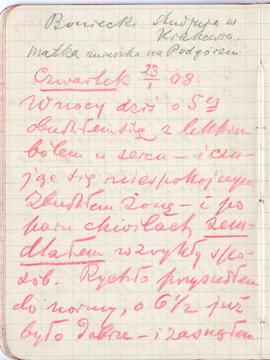 Boniecki studjuje w
Krakowie.
matka mieszka na Podgórzu
Czwartek 23/1 08.
W nocy dziś o 5ej
obudziłem się z lekkim
bólem w sercu – i czu-
jąc się niespokojnym
zbudziłem żonę – i po
paru chwilach zem-
dlałem w zwykły spo-
sób. Rychło przyszedłem
do normy, o 6 1/2 już
było dobrze – i zasnąłem